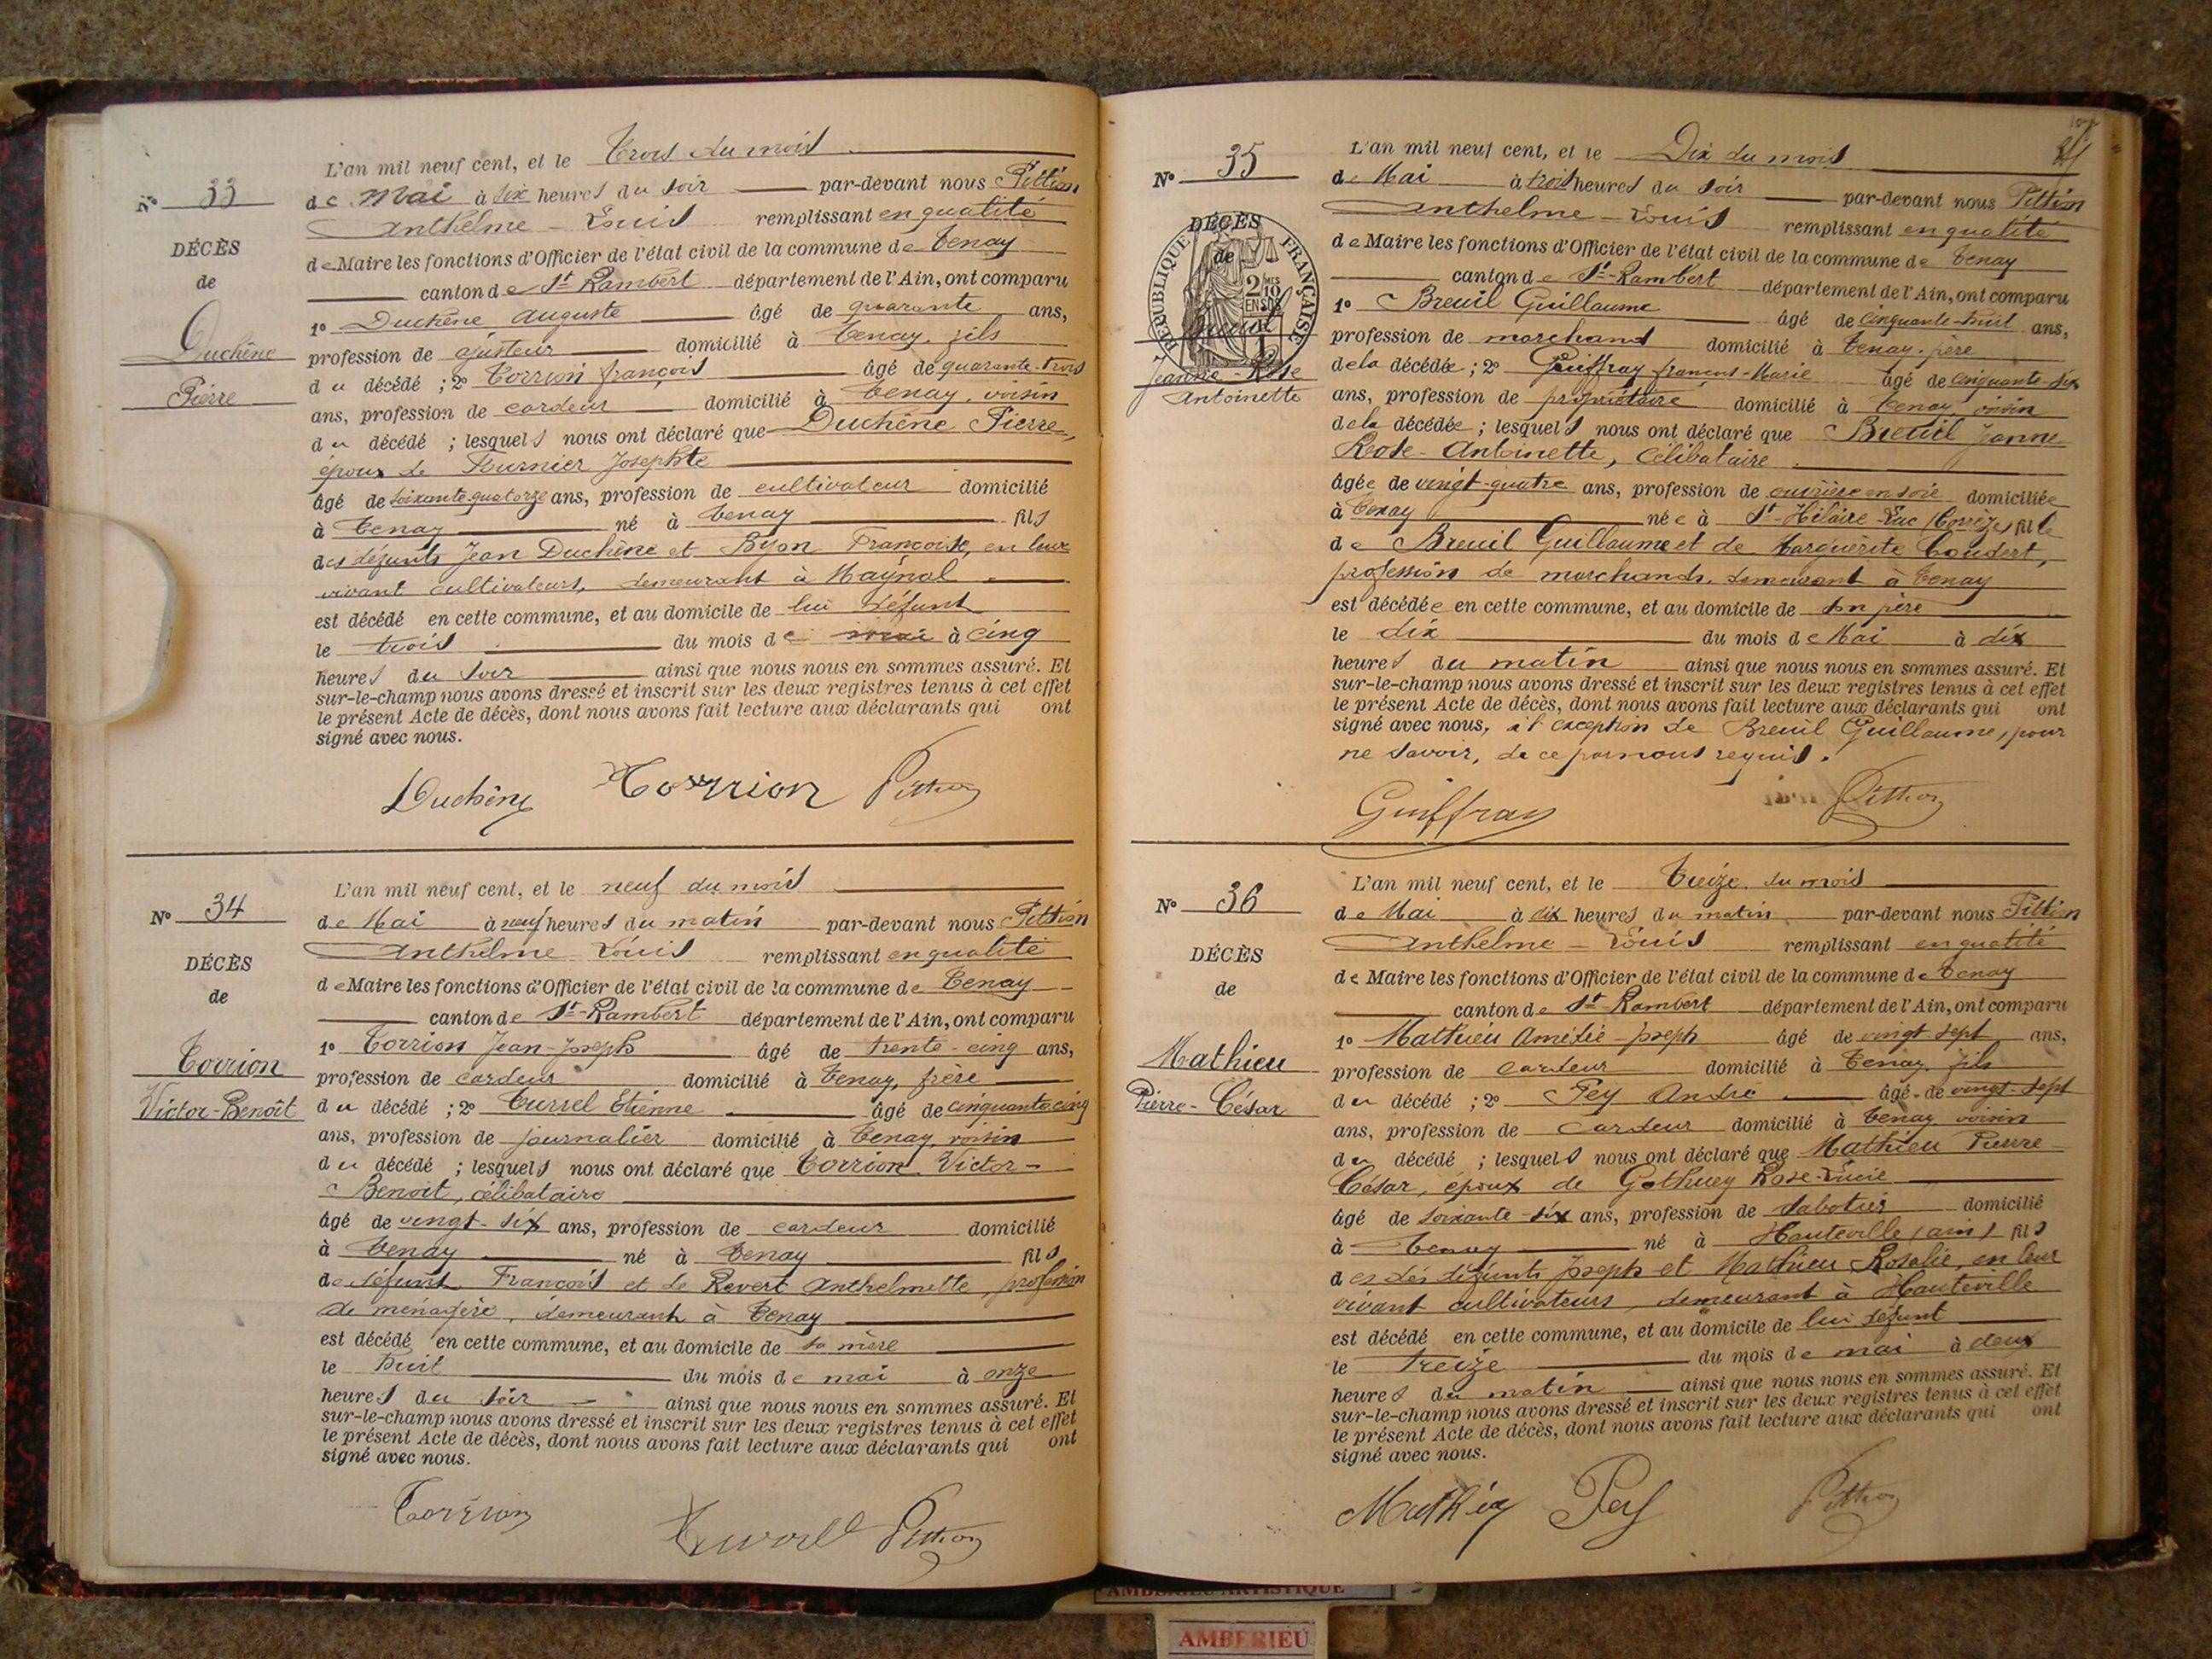 N° 33
DÉCÈS
de
Duchêne
Pierre
L'an mil neuf cent, et le Trois du mois
de Mai à six heures du soir par-devant nous Pittion
Anthelme - Louis remplissant en qualité
de Maire les fonctions d'Officier de l'état civil de la commune de Tenay
canton de St-Rambert département de l'Ain, ont comparu
1° Duchêne Auguste âgé de quarante ans,
profession de ajusteur domicilié à Tenay, fils
du décédé ; 2° Torrion françois âgé de quarante-trois
ans, profession de cardeur domicilié à Tenay, voisin
du décédé ; lesquels nous ont déclaré que Duchêne Pierre,
époux de Fournier Josephte
âgé de soixante-quatorze ans, profession de cultivateur domicilié
à Tenay né à Tenay fils
des défunts Jean Duchêne et Byon Françoise, en leur
vivant cultivateurs, demeurant à Maynal
est décédé en cette commune, et au domicile de lui défunt
le trois du mois de mai à cinq
heures du soir ainsi que nous nous en sommes assuré. Et
sur-le-champ nous avons dressé et inscrit sur les deux registres tenus à cet effet
le présent Acte de décès, dont nous avons fait lecture aux déclarants qui ont
signé avec nous.
Duchêne Torrion Pittion
N° 34
DÉCÈS
de
Torrion
Victor-Benoît
L'an mil neuf cent, et le neuf du mois
de Mai à neuf heures du matin par-devant nous Pittion
Anthelme Louis remplissant en qualité
de Maire les fonctions d'Officier de l'état civil de la commune de Tenay
canton de St-Rambert département de l'Ain, ont comparu
1° Torrion Jean-Joseph âgé de trente-cinq ans,
profession de cardeur domicilié à Tenay, frère
du décédé ; 2° Turrel Etienne âgé de cinquante cinq
ans, profession de journalier domicilié à Tenay, voisin
du décédé ; lesquels nous ont déclaré que Torrion Victor-
Benoit, célibataire
âgé de vingt-six ans, profession de cardeur domicilié
à Tenay né à Tenay fils
de défunt François et de Revert Anthelmette, profession
de ménagère, demeurant à Tenay
est décédé en cette commune, et au domicile de sa mère
le huit du mois de mai à onze
heures du soir ainsi que nous nous en sommes assuré. Et
sur-le-champ nous avons dressé et inscrit sur les deux registres tenus à cet effet
le présent Acte de décès, dont nous avons fait lecture aux déclarants qui ont
signé avec nous.
Torrion Pittion
N° 35
DÉCÈS
de
RÉPUBLIQUE FRANÇAISE
2 MES 10 EN SUS
Breuil
Jeanne-Rose
Antoinette
L'an mil neuf cent, et le Dix du mois
de Mai à trois heures du soir par-devant nous Pittion
Anthelme - Louis remplissant en qualité
de Maire les fonctions d'Officier de l'état civil de la commune de Tenay
canton de St-Rambert département de l'Ain, ont comparu
1° Breuil Guillaume âgé de cinquante-huit ans,
profession de marchand domicilié à Tenay, père
de la décédée ; 2° Guiffray françois-Marie âgé de cinquante-six
ans, profession de propriétaire domicilié à Tenay, voisin
de la décédée ; lesquels nous ont déclaré que Breuil Jeanne
Rose-Antoinette, célibataire
âgée de vingt-quatre ans, profession de ouvrière en soie domiciliée
à Tenay née à St-Hilaire-Luc (Corrèze) fille
de Breuil Guillaume et de Marguerite Coudert,
profession de marchands, demeurant à Tenay
est décédée en cette commune, et au domicile de son père
le dix du mois de Mai à dix
heures du matin ainsi que nous nous en sommes assuré. Et
sur-le-champ nous avons dressé et inscrit sur les deux registres tenus à cet effet
le présent Acte de décès, dont nous avons fait lecture aux déclarants qui ont
signé avec nous, à l'exception de Breuil Guillaume, pour
ne savoir, de ce par nous requis.
Guiffray Pittion
N° 36
DÉCÈS
de
Mathieu
Pierre-César
L'an mil neuf cent, et le Treize du mois
de Mai à dix heures du matin par-devant nous Pittion
Anthelme - Louis remplissant en qualité
de Maire les fonctions d'Officier de l'état civil de la commune de Tenay
canton de St-Rambert département de l'Ain, ont comparu
1° Mathieu Amédée-Joseph âgé de vingt-sept ans,
profession de cardeur domicilié à Tenay, fils
du décédé ; 2° Pey André âgé de vingt-sept
ans, profession de cardeur domicilié à Tenay, voisin
du décédé ; lesquels nous ont déclaré que Mathieu Pierre
César, époux de Gothuey Rose-Lucie
âgé de soixante-six ans, profession de sabotier domicilié
à Tenay né à Hauteville (ain) fils
des dés défunts Joseph et Mathieu Rosalie, en leur
vivant cultivateurs, demeurant à Hauteville
est décédé en cette commune, et au domicile de lui défunt
le treize du mois de mai à deux
heures du matin ainsi que nous nous en sommes assuré. Et
sur-le-champ nous avons dressé et inscrit sur les deux registres tenus à cet effet
le présent Acte de décès, dont nous avons fait lecture aux déclarants qui ont
signé avec nous.
Mathieu Pey Pittion
AMBERIEU ARTISTIQUE
AMBERIEU